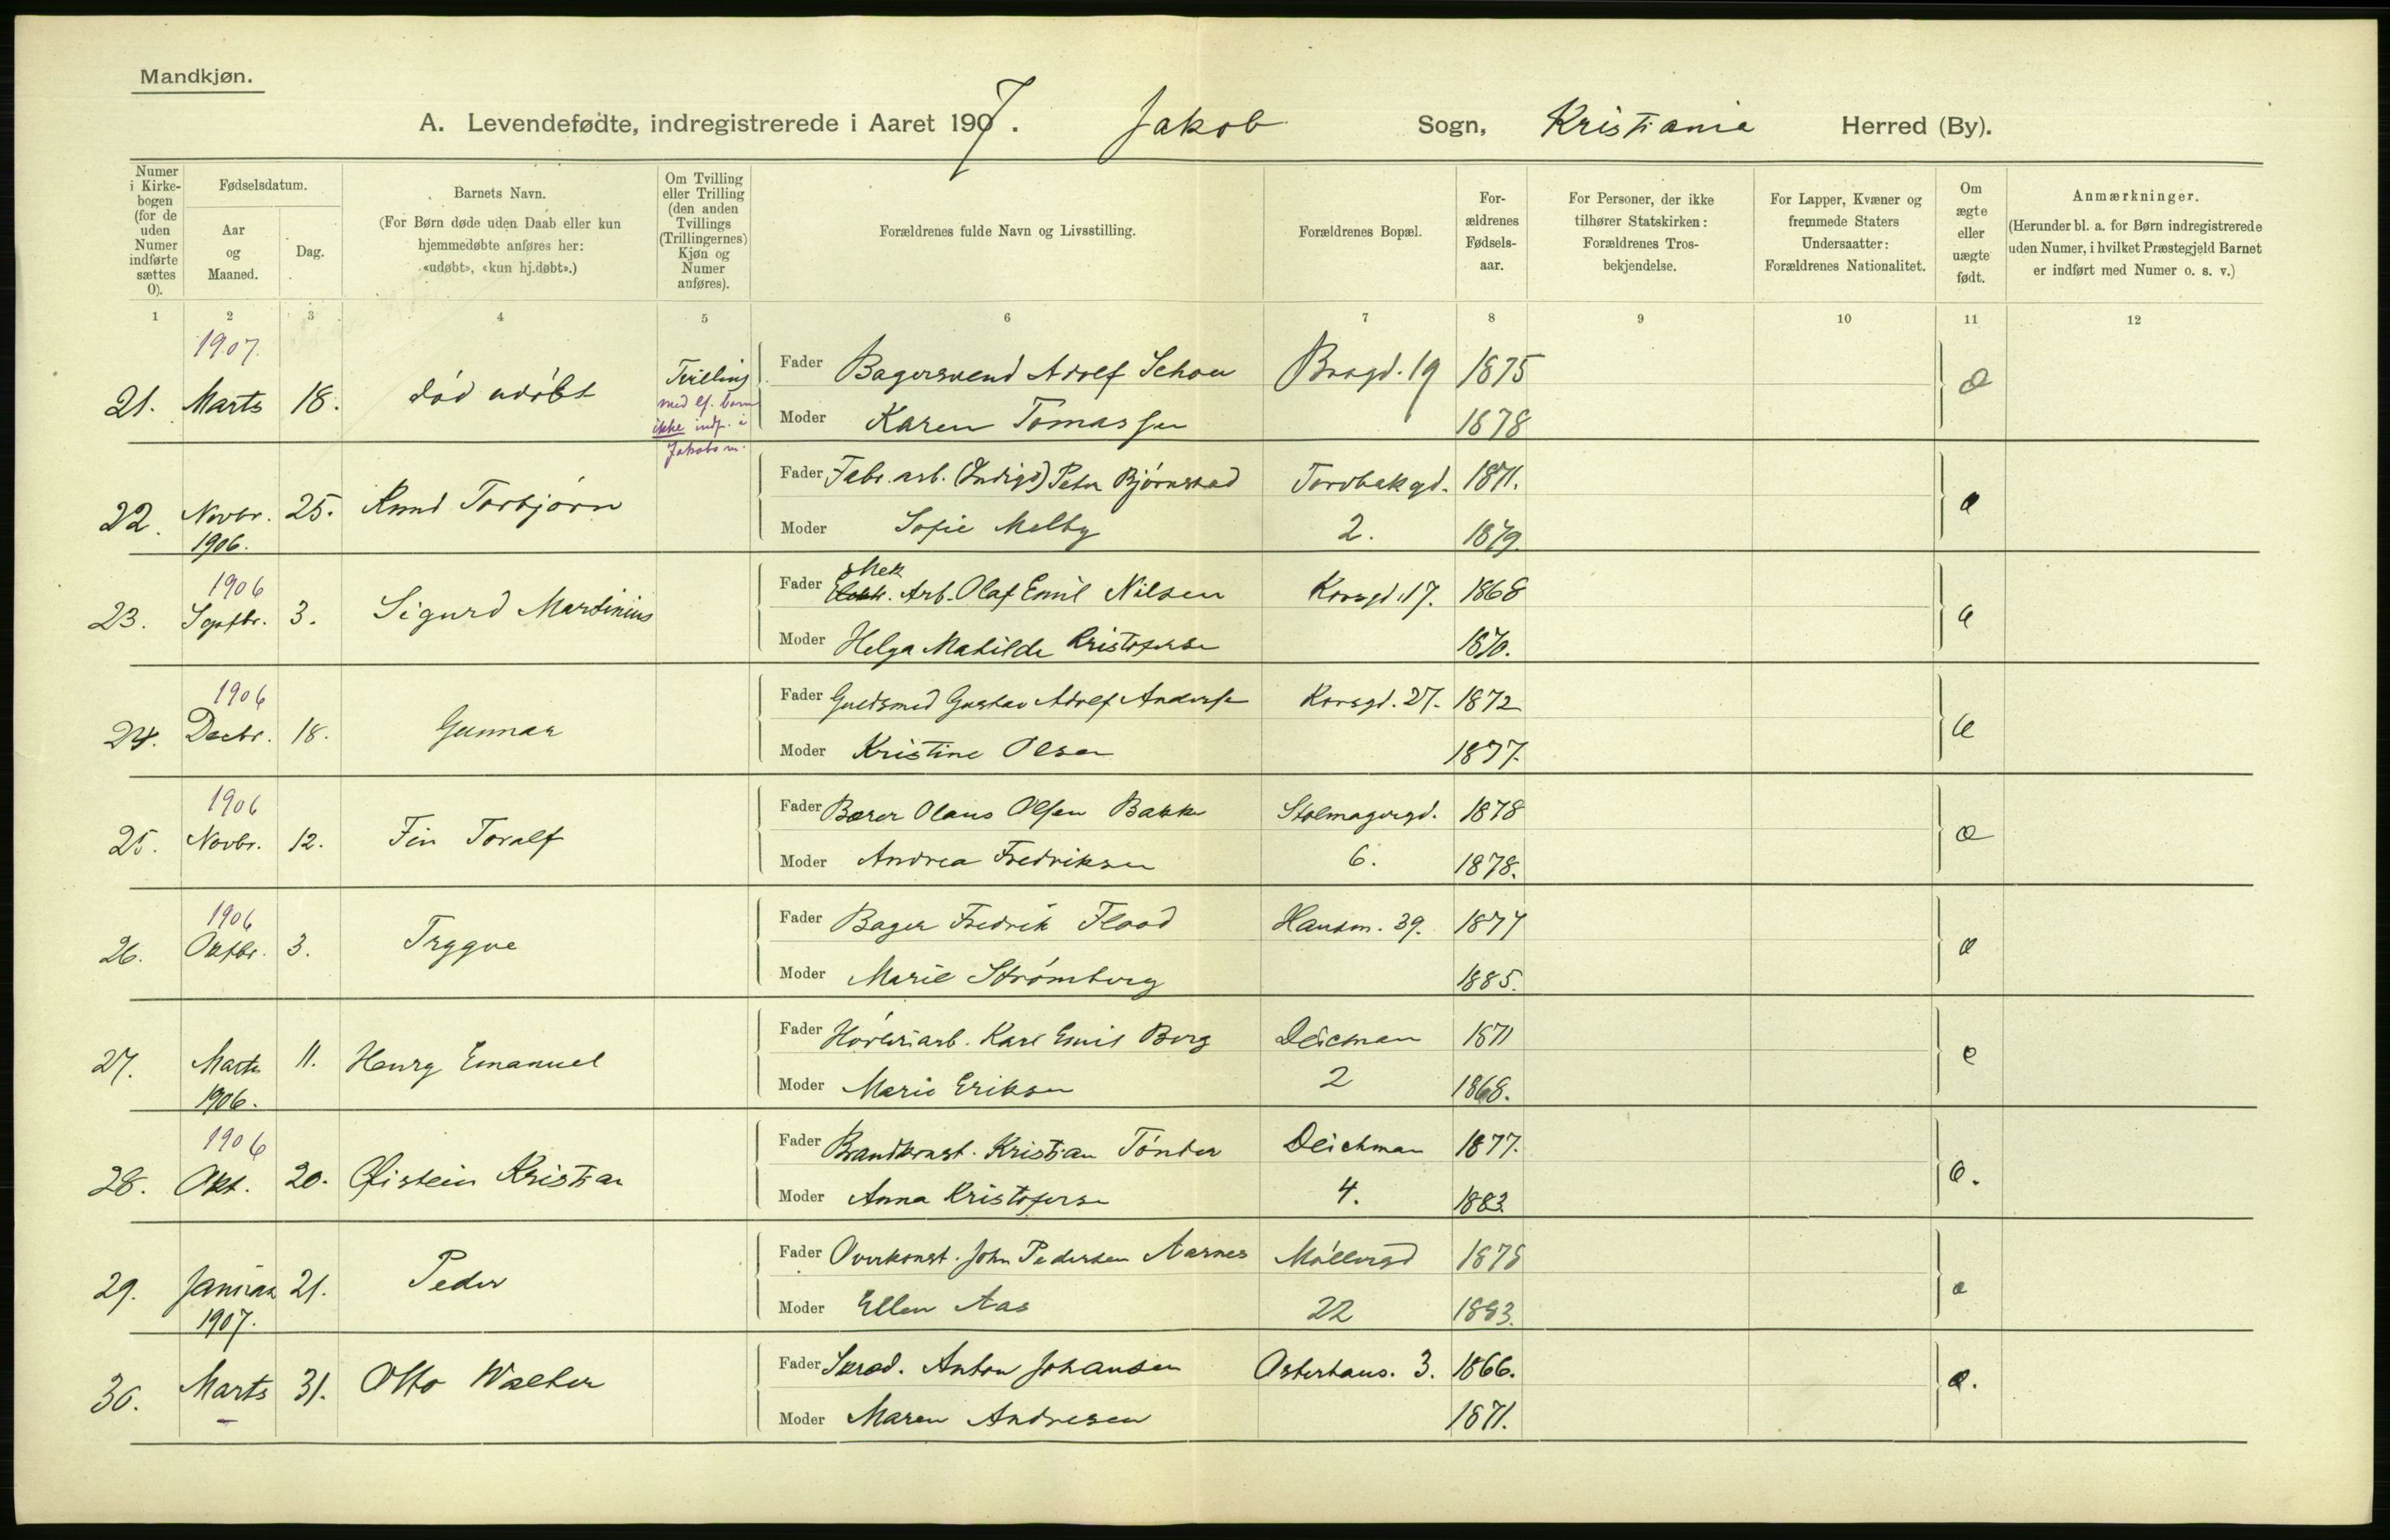 Mandkjøn.
A. Levendefødte, indregistrerede i Aaret 1907. Jakob Sogn, Kristiania Herred (By).
Numer i Kirkebogen (for de uden Numer indførte sættes 0).
Fødselsdatum.
Aar og Maaned.
Dag.
Barnets Navn.
(For Børn døde uden Daab eller kun hjemmedøbte anføres her: «udøbt», «kun hj.døbt».)
Om Tvilling eller Trilling (den anden Tvillings (Trillingernes) Kjøn og Numer anføres).
Forældrenes fulde Navn og Livsstilling.
Forældrenes Bopæl.
Forældrenes Fødselsaar.
For Personer, der ikke tilhører Statskirken: Forældrenes Trosbekjendelse.
For Lapper, Kvæner og fremmede Staters Undersaatter: Forældrenes Nationalitet.
Om ægte eller uægte født.
Anmærkninger.
(Herunder bl. a. for Børn indregistrerede uden Numer, i hvilket Præstegjeld Barnet er indført med Numer o. s. v.)
1 2 3 4 5 6 7 8 9 10 11 12
1907.
21. Marts 18. død udøbt Tvilling med lf. barn ikke indf. i Jakobs m.
Fader Bagersvend Adolf Schou 19 1875 
Moder Karen Tomassen 1878
22. Novbr. 1906. 25. Knud Torbjørn
Fader Fabr. arb. Peter Bjørnstad Torvbakgd. 1871.
Moder Sofie Melby 2. 1879.
1906
23. Septbr. 3. Sigurd Martinius
Fader Mek. Arb. Olaf Emil Nilsen Korsgd. 17. 1868
Moder Helga Mathilde Kristofersen 1870.
1906
24. Decbr. 18. Gunnar
Fader Guldsmed Gustav Adolf Andersen Korsgd. 27. 1872
Moder Kristine Olsen 1877.
1906
25. Novbr. 12. Fin Toralf
Fader Bærer Olaus Olsen Bakke Stolmagergd. 1878
Moder Andrea Fredriksen 6. 1878.
1906
26. Oktbr. 3. Trygve
Fader Bager Fredrik Flood Hausm. 39. 1877
Moder Marie Strømberg 1885.
27. Marts 1906. 11. Henry Emanuel
Fader Høvleriarb. Karl Emil Berg Deicman 1871
Moder Marie Eriksen 2 1868.
1906
28. Okt. 20. Øistein Kristian
Fader Brandkonst. Kristian Tønder Deichman 1877.
Moder Anna Kristofersen 4. 1883
29. Januar 1907. 21. Peder
Fader Overkonst. John Pedersen Aarnes Møllergd 1878
Moder Ellen Aas 22 1883.
30. Marts 31. Otto Walter
Fader Skræd. Anton Johansen Osterhaus. 3. 1866.
Moder Maren Andresen 1871.